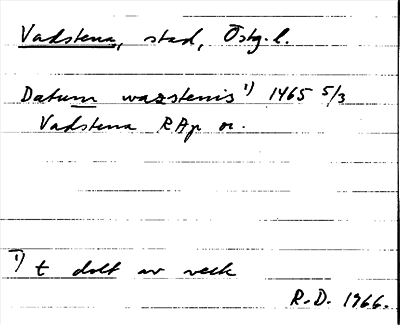 Vadstena, stad, Östg.l.
Datum wazstenis 1) 1465 5/3
Vadstena RAp or.
1) t dolt av veck
R.D. 1966.